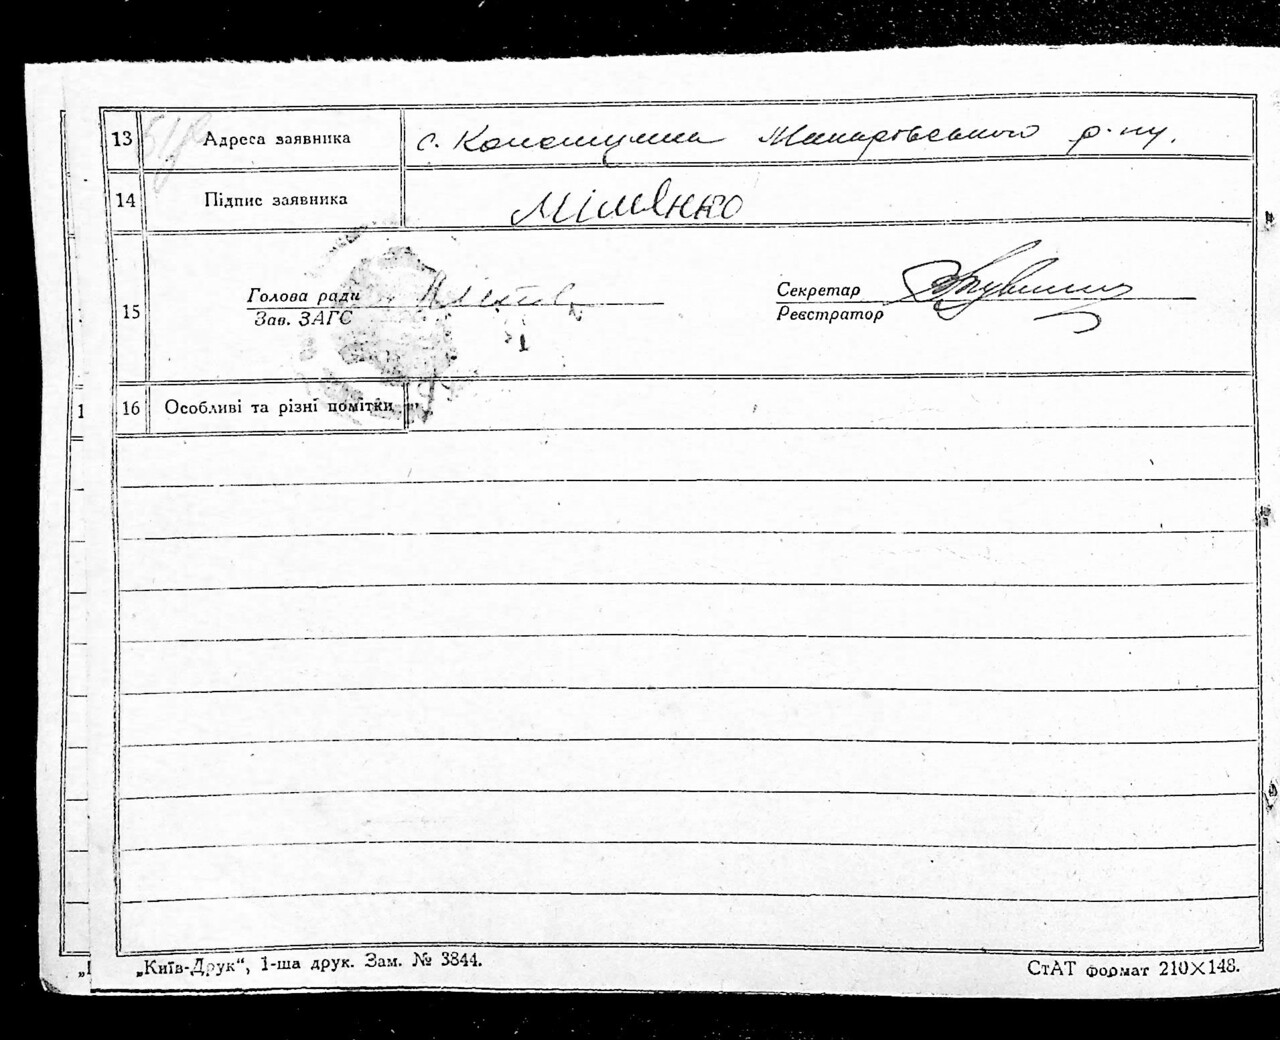 13 Адреса заявника с. Копошулина Макарівського р-ну.
14 Підпис заявника Міленко
15 Голова ради
Зав. ЗАГС
Секретар
Реєстратор
16 Особливі та різні помітки
„Київ-Друк“, 1-ша друк. Зам. № 3844.
СтАТ формат 210×148.